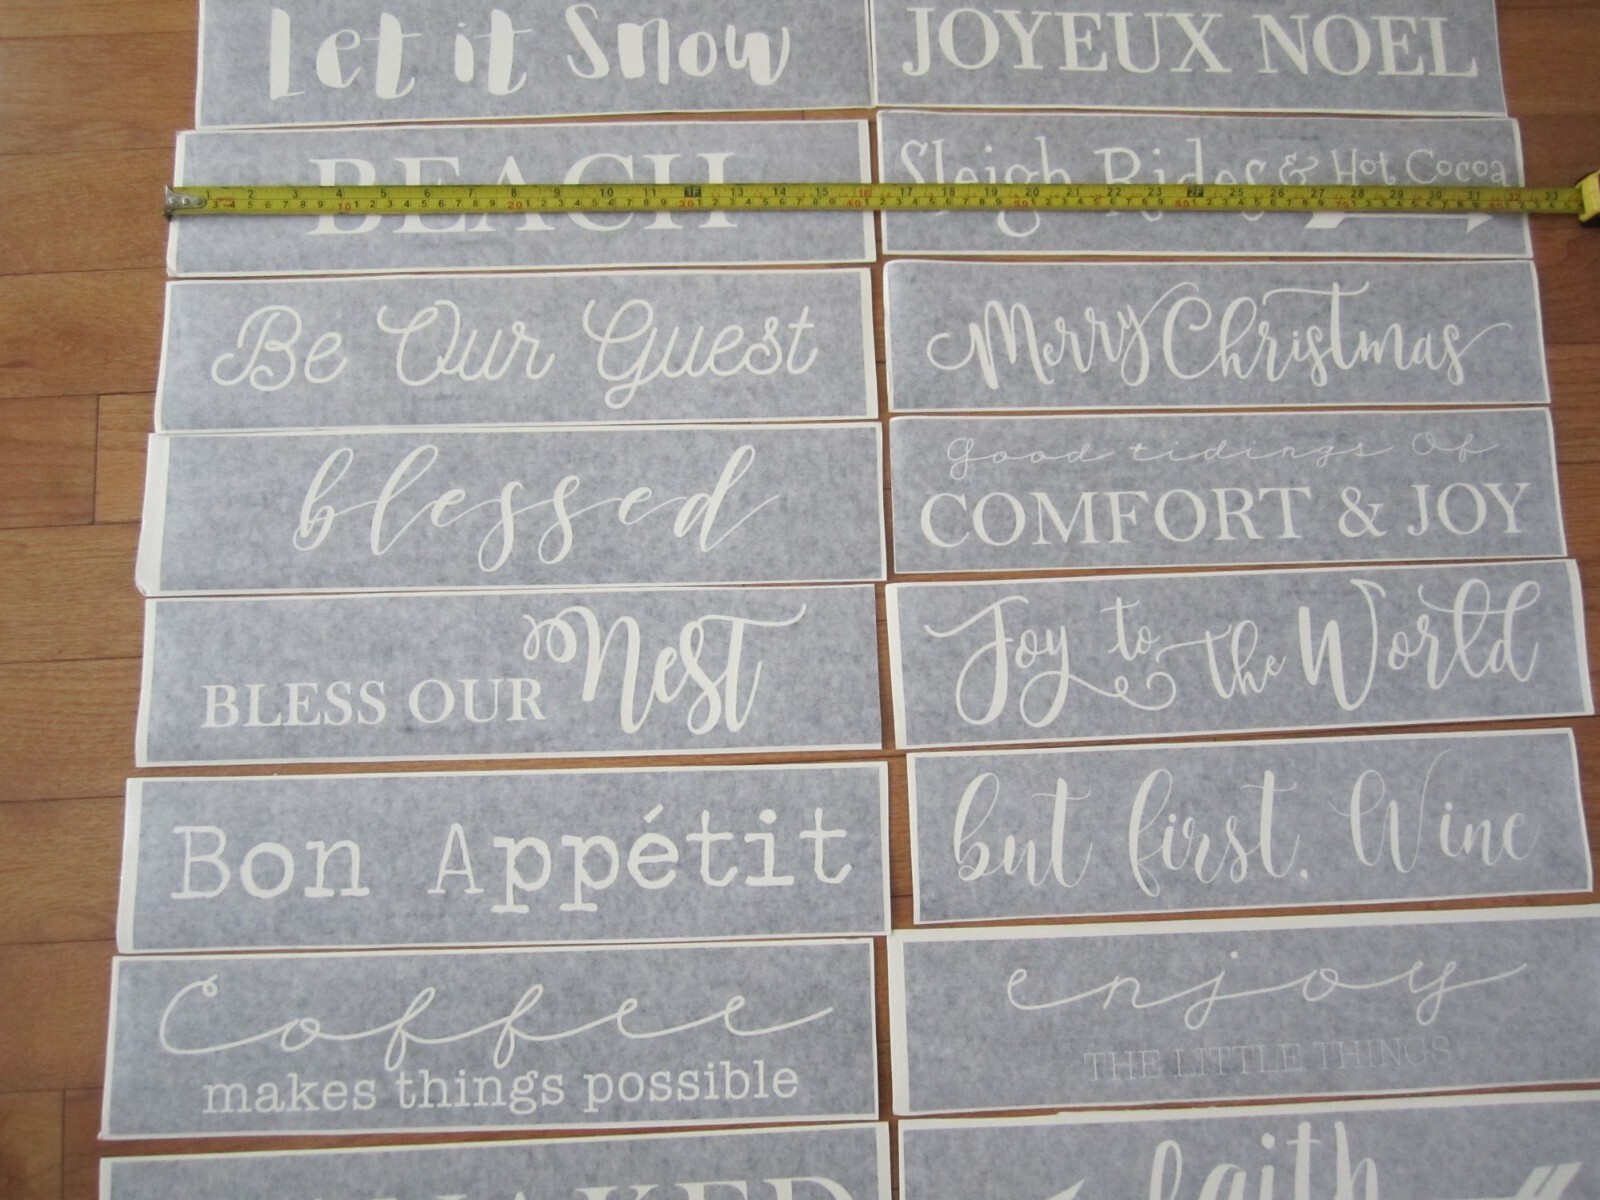 Let it Snow
JOYEUX NOEL
BEACH
Sleigh Rides & Hot Cocoa
1 2 3 4 5 6 7 8 9 10 11 1F 13 14 15 16 17 18 19 20 21 22 23 2F 25 26 27 28 29 30 31 32 33
Be Our Guest
Merry Christmas
blessed
Good tidings Of
COMFORT & JOY
BLESS OUR Nest
Joy to the World
Bon Appétit
but first, Wine
Coffee
makes things possible
enjoy
THE LITTLE THINGS
faith